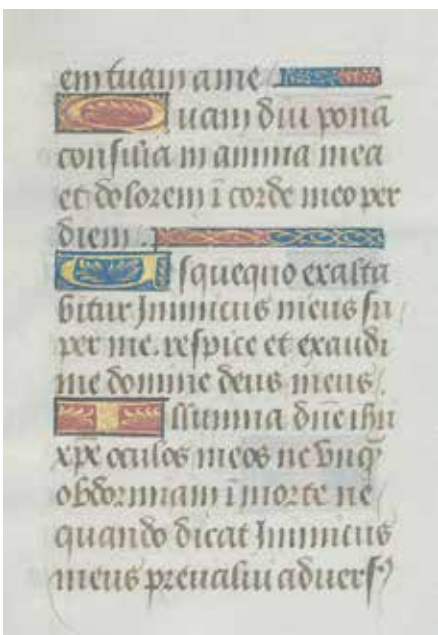 em tuam a me
Quam diu ponã
consilia in anima mea
et dolorem ĩ corde meo per
diem.
Usquequo exalta
bitur Inimicus meus su
per me. respice et exaudi
me domine deus meus.
Illumina dñe ihu
xp̃e oculos meos ne vnq̃
obdormiam ĩ morte ne
quando dicat Inimicus
meus preualui aduersꝰ